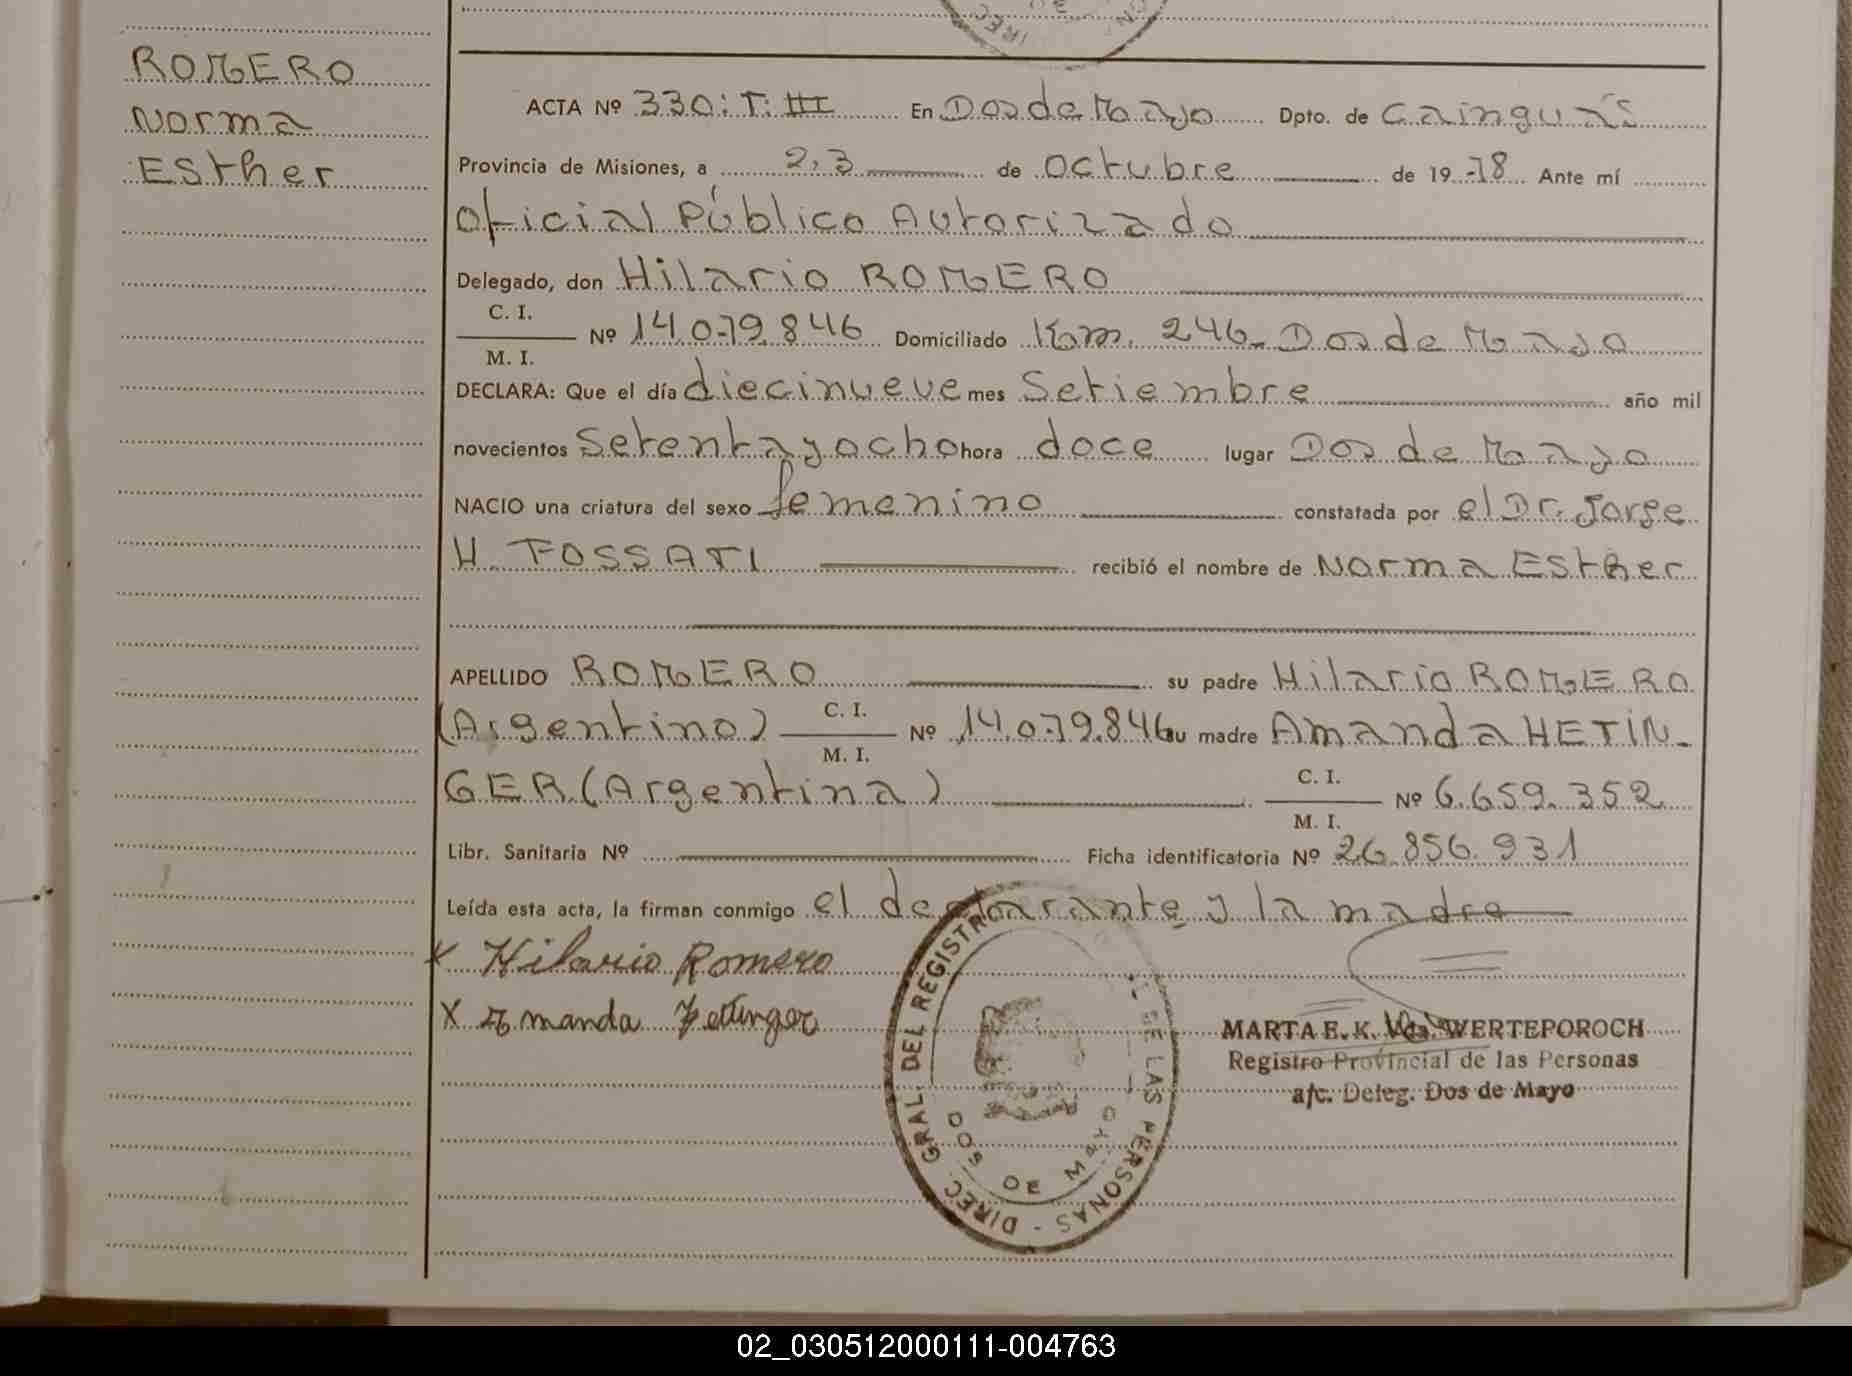 ROMERO
Norma
Esther
IREC
DE
ON
ACTA Nº 330: T: III En Dos de Mayo Dpto. de Cainguás
Provincia de Misiones, a 23 de Octubre de 1978 Ante mí
Oficial Público Autorizado
Delegado, don Hilario ROMERO
C. I.
M. I.
Nº 14.079.846 Domiciliado Km. 246 - Dos de Mayo
DECLARA: Que el día diecinueve mes Setiembre año mil
novecientos Setentayocho hora doce lugar Dos de Mayo
NACIO una criatura del sexo femenino constatada por el Dr. Jorge
H. FOSSATI recibió el nombre de Norma Esther
APELLIDO ROMERO su padre Hilario ROMERO
(Argentino) C. I. M. I. Nº 14.079.846 su madre Amanda HETIN-
GER (Argentina) C. I. M. I. Nº 6.659.352
Libr. Sanitaria Nº Ficha identificatoria Nº 26.856.931
Leída esta acta, la firman conmigo el declarante y la madre
X Hilario Romero
X Amanda Hettinger
DIREC GRAL. DEL REGISTR DE LAS PERSONAS -
DOS DE MAYO
MARTA E. K. Vda. WERTEPOROCH
Registro Provincial de las Personas
a/c. Deleg. Dos de Mayo
02_030512000111-004763